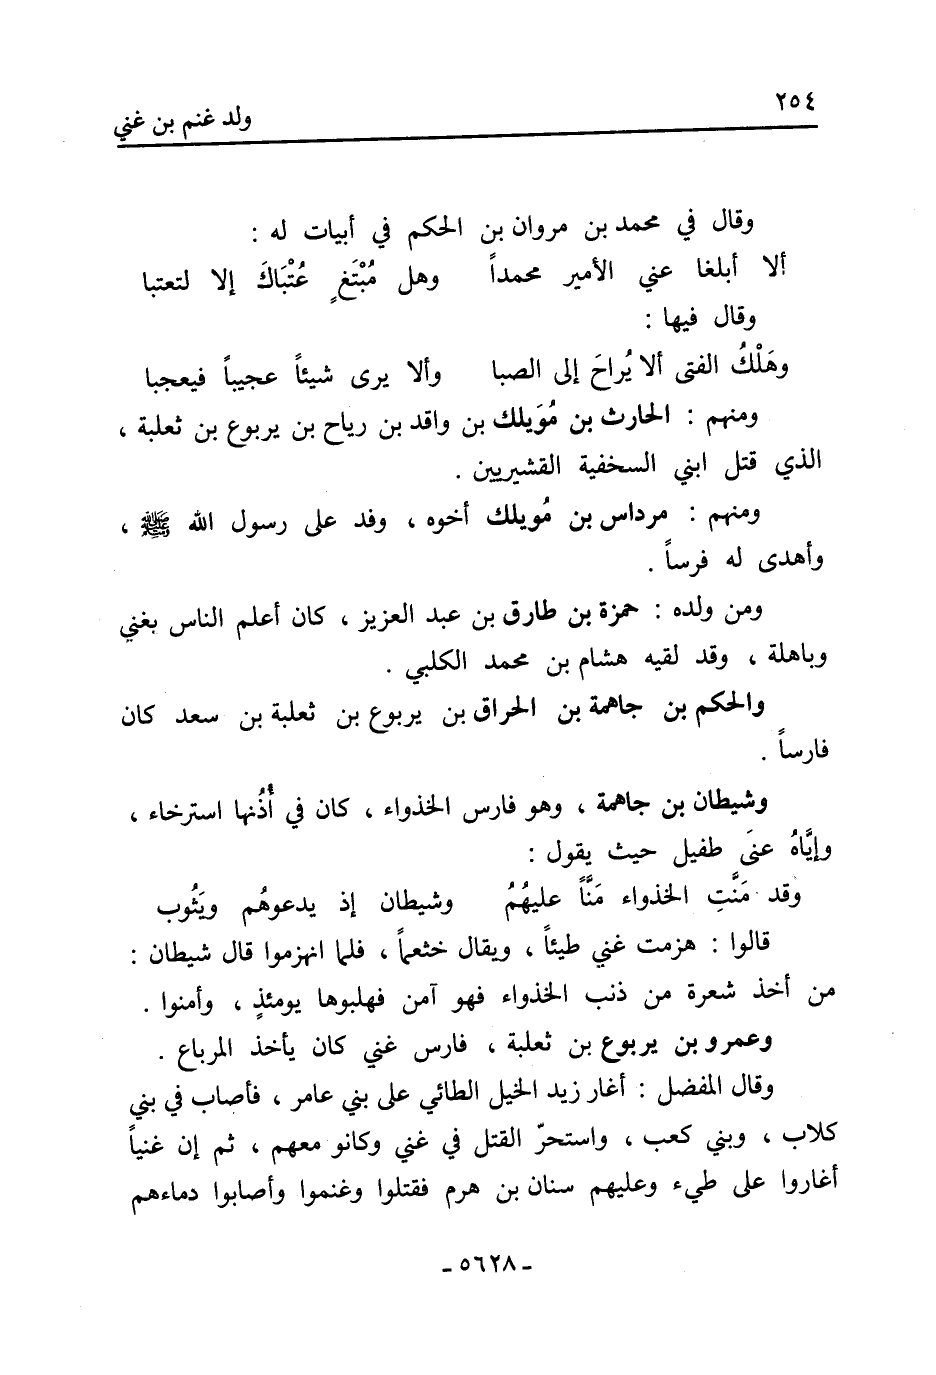 ٢٥٤
ولد غنم بن غني
وقال في محمد بن مروان بن الحكم في أبيات له :
ألا أبلغا عني الأمير محمداً وهل مُبْتَغٍ عُتْبَاكَ إلا لتعتبا
وقال فيها :
وهَلْكُ الفتى ألا يُراحَ إلى الصبا وألا يرى شيئاً عجيباً فيعجبا
ومنهم : الحارث بن مُوَيلك بن واقد بن رياح بن يربوع بن ثعلبة ،
الذي قتل ابني السخفية القشيريين .
ومنهم : مرداس بن مُويلك أخوه ، وفد على رسول الله ﷺ ،
وأهدى له فرساً .
ومن ولده : حمزة بن طارق بن عبد العزيز ، كان أعلم الناس بغني
وباهلة ، وقد لقيه هشام بن محمد الكلبي .
والحكم بن جاهمة بن الحراق بن يربوع بن ثعلبة بن سعد كان
فارساً .
وشيطان بن جاهمة ، وهو فارس الخذواء ، كان في أُذُنها استرخاء ،
وإيَّاهُ عنىَ طفيل حيث يقول :
وقد مَنَّتِ الخذواء مَنَّاً عليهُمُ وشيطان إذ يدعوهُم ويَثُوب
قالوا : هزمت غني طيئاً ، ويقال خثعماً ، فلما انهزموا قال شيطان :
من أخذ شعرة من ذنب الخذواء فهو آمن فهلبوها يومئذٍ ، وأمنوا .
وعمرو بن يربوع بن ثعلبة ، فارس غني كان يأخذ المرباع .
وقال المفضل : أغار زيد الخيل الطائي على بني عامر ، فأصاب في بني
كلاب ، وبني كعب ، واستحرّ القتل في غني وكانو معهم ، ثم إن غنياً
أغاروا على طيء وعليهم سنان بن هرم فقتلوا وغنموا وأصابوا دماءهم
- ٥٦٢٨ -